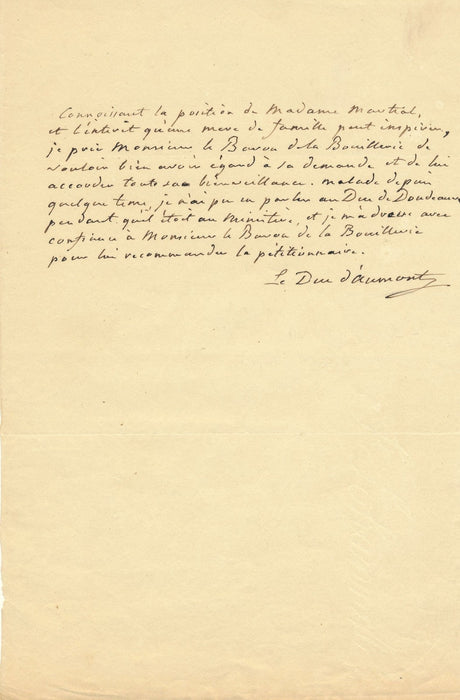 Connoissant la position de Madame Martial,
et l'intérêt qu'une mere de famille peut inspirer,
je prie Monsieur le Baron de la Bouillerie de
vouloir bien avoir égard à sa demande et de lui
accorder toute sa bienveillance. malade depuis
quelque tems, je n'ai pu en parler au Duc de Doudeauville
pendant qu'il étoit au Ministere, et je m'adresse avec
confiance à Monsieur le Baron de la Bouillerie
pour lui recommander la pétitionnaire.
Le Duc d'aumont